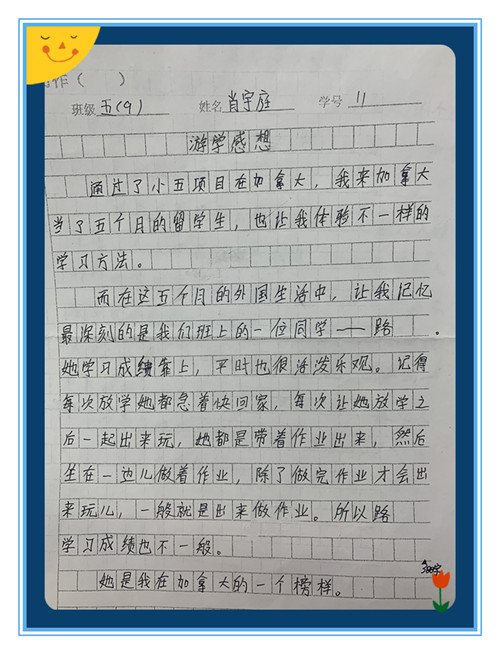 作（ ）
班级 五(9) 姓名 肖宇庭 学号 11
游学感想
通过了小五项目在加拿大，我来加拿大
当了五个月的留学生，也让我体验不一样的
学习方法。
而在这五个月的外国生活中，让我记忆
最深刻的是我们班上的一位同学——路 。
她学习成绩靠上，平时也很活泼乐观。记得
每次放学她都急着快回家，每次让她放学之
后一起出来玩，她都是带着作业出来，然后
坐在一边儿做着作业，除了做完作业才会出
来玩儿，一般就是出来做作业。所以路
学习成绩也不一般。
她是我在加拿大的一个榜样。